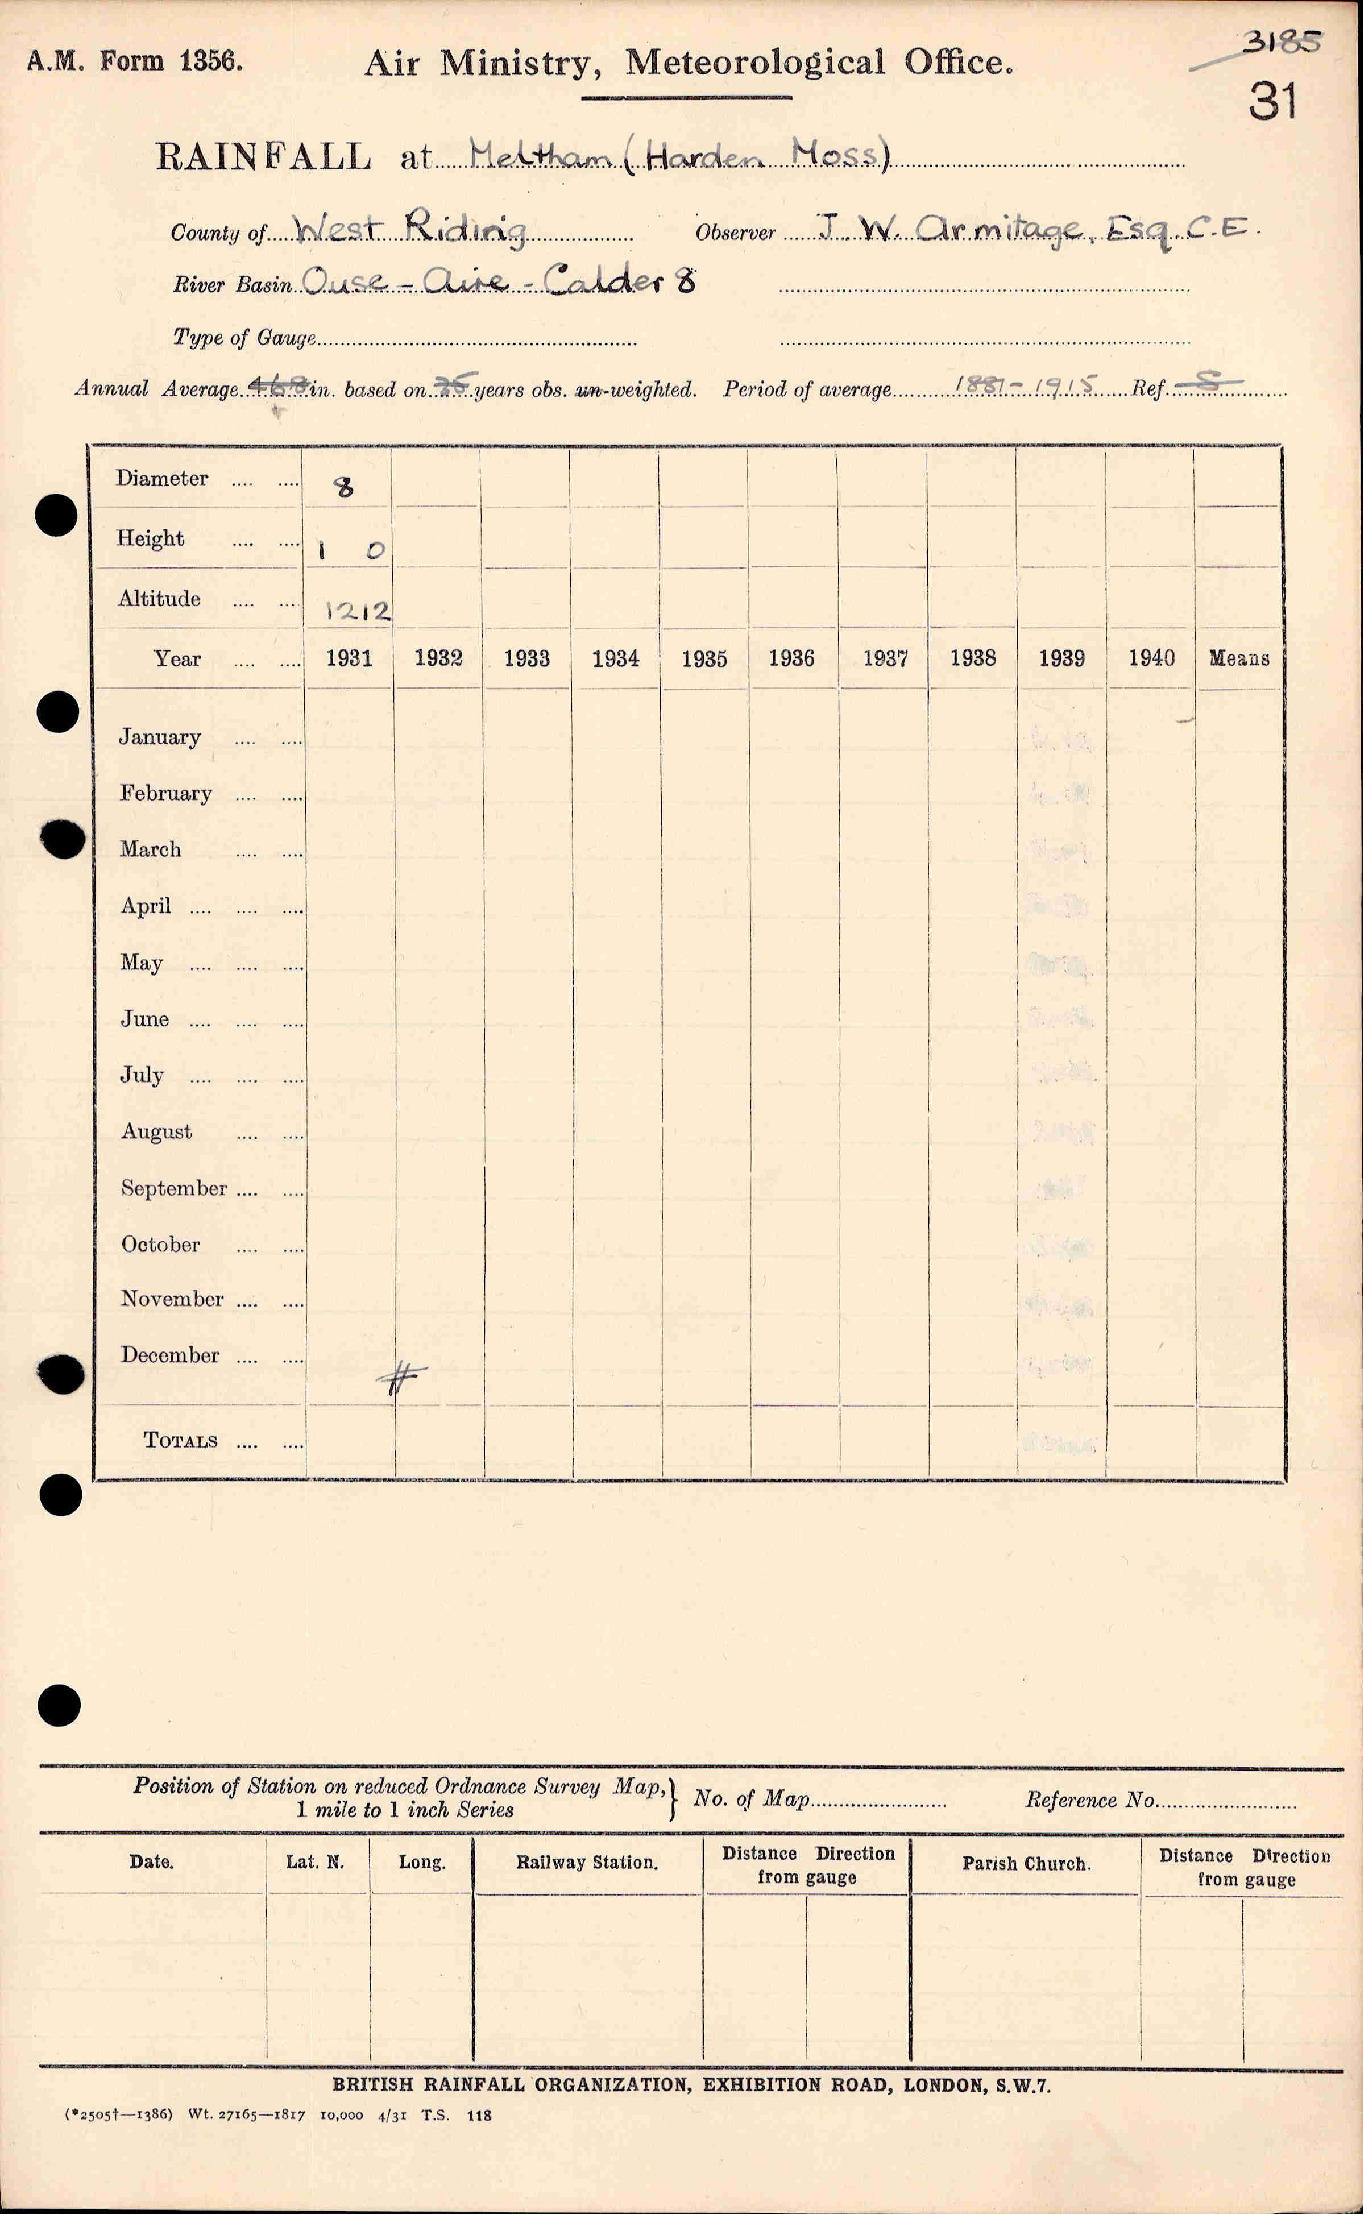 3185
A.M. Form 1356. Air Ministry, Meteorological Office.
31
RAINFALL at Meltham (Harden Moss)
County of West Riding Observer J. W. Armitage, Esq. C.E.
River Basin Ouse - Aire - Calder 8
Type of Gauge
Annual Average 46.8 in. based on 35 years obs. un-weighted. Period of average 1881-1915 Ref. S
Diameter .... .... 8
Height .... .... 1 0
Altitude .... .... 1212
Year .... .... 1931 1932 1933 1934 1935 1936 1937 1938 1939 1940 Means
January .... ....
February .... ....
March .... ....
April .... .... ....
May .... .... ....
June .... .... ....
July .... .... ....
August .... ....
September .... ....
October .... ....
November .... ....
December .... ....
#
TOTALS .... ....
Position of Station on reduced Ordnance Survey Map,} No. of Map Reference No.
1 mile to 1 inch Series
Date. Lat. N. Long. Railway Station. Distance Direction from gauge Parish Church. Distance Direction from gauge
BRITISH RAINFALL ORGANIZATION, EXHIBITION ROAD, LONDON, S.W.7.
(*2505†—1386) Wt. 27165—1817 10,000 4/31 T.S. 118